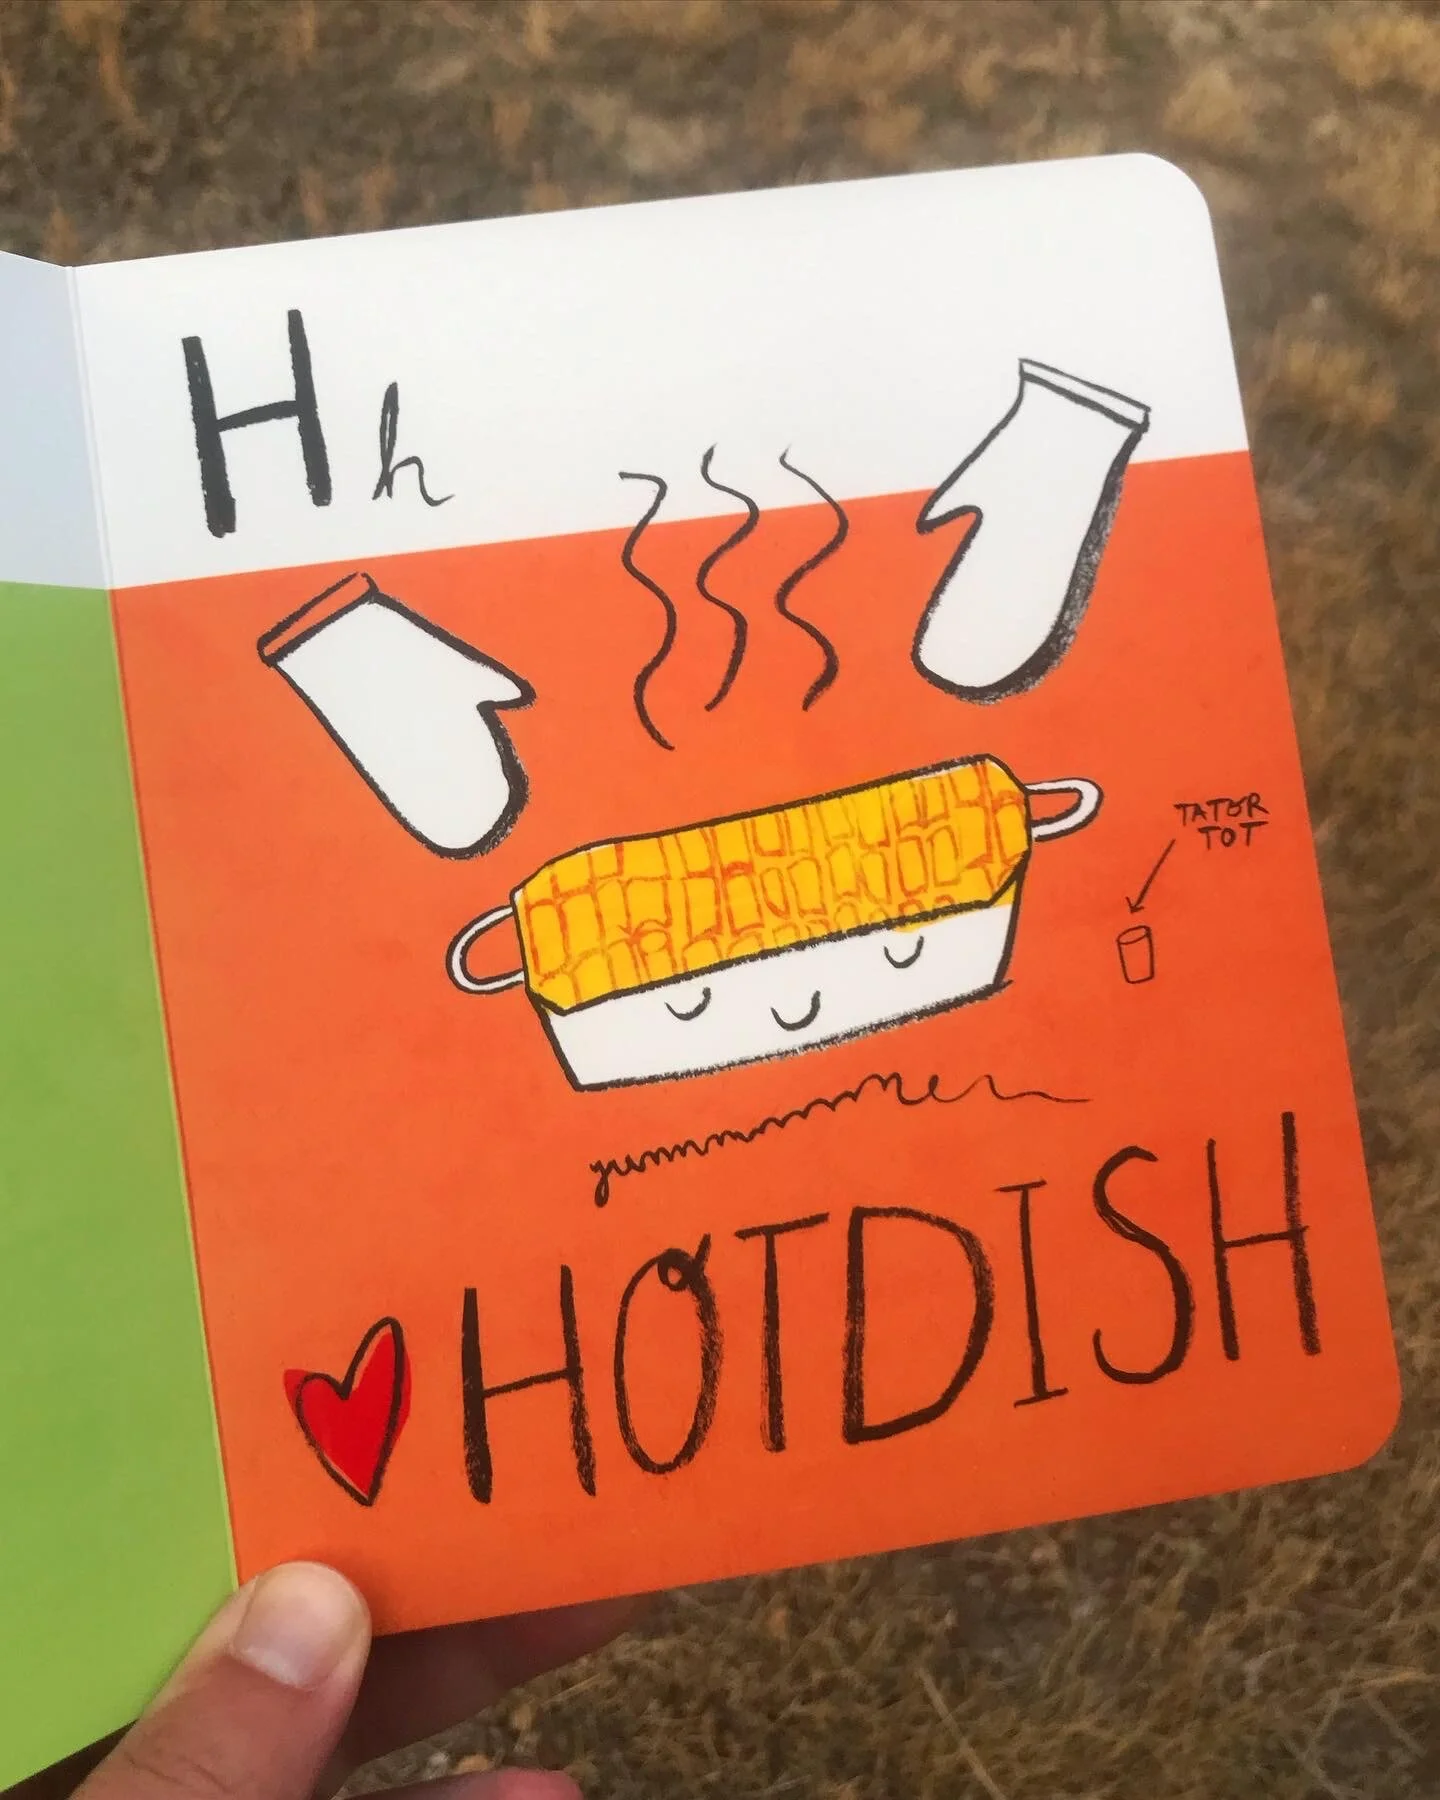 H h
TATOR
TOT
yummmmmer
HOTDISH